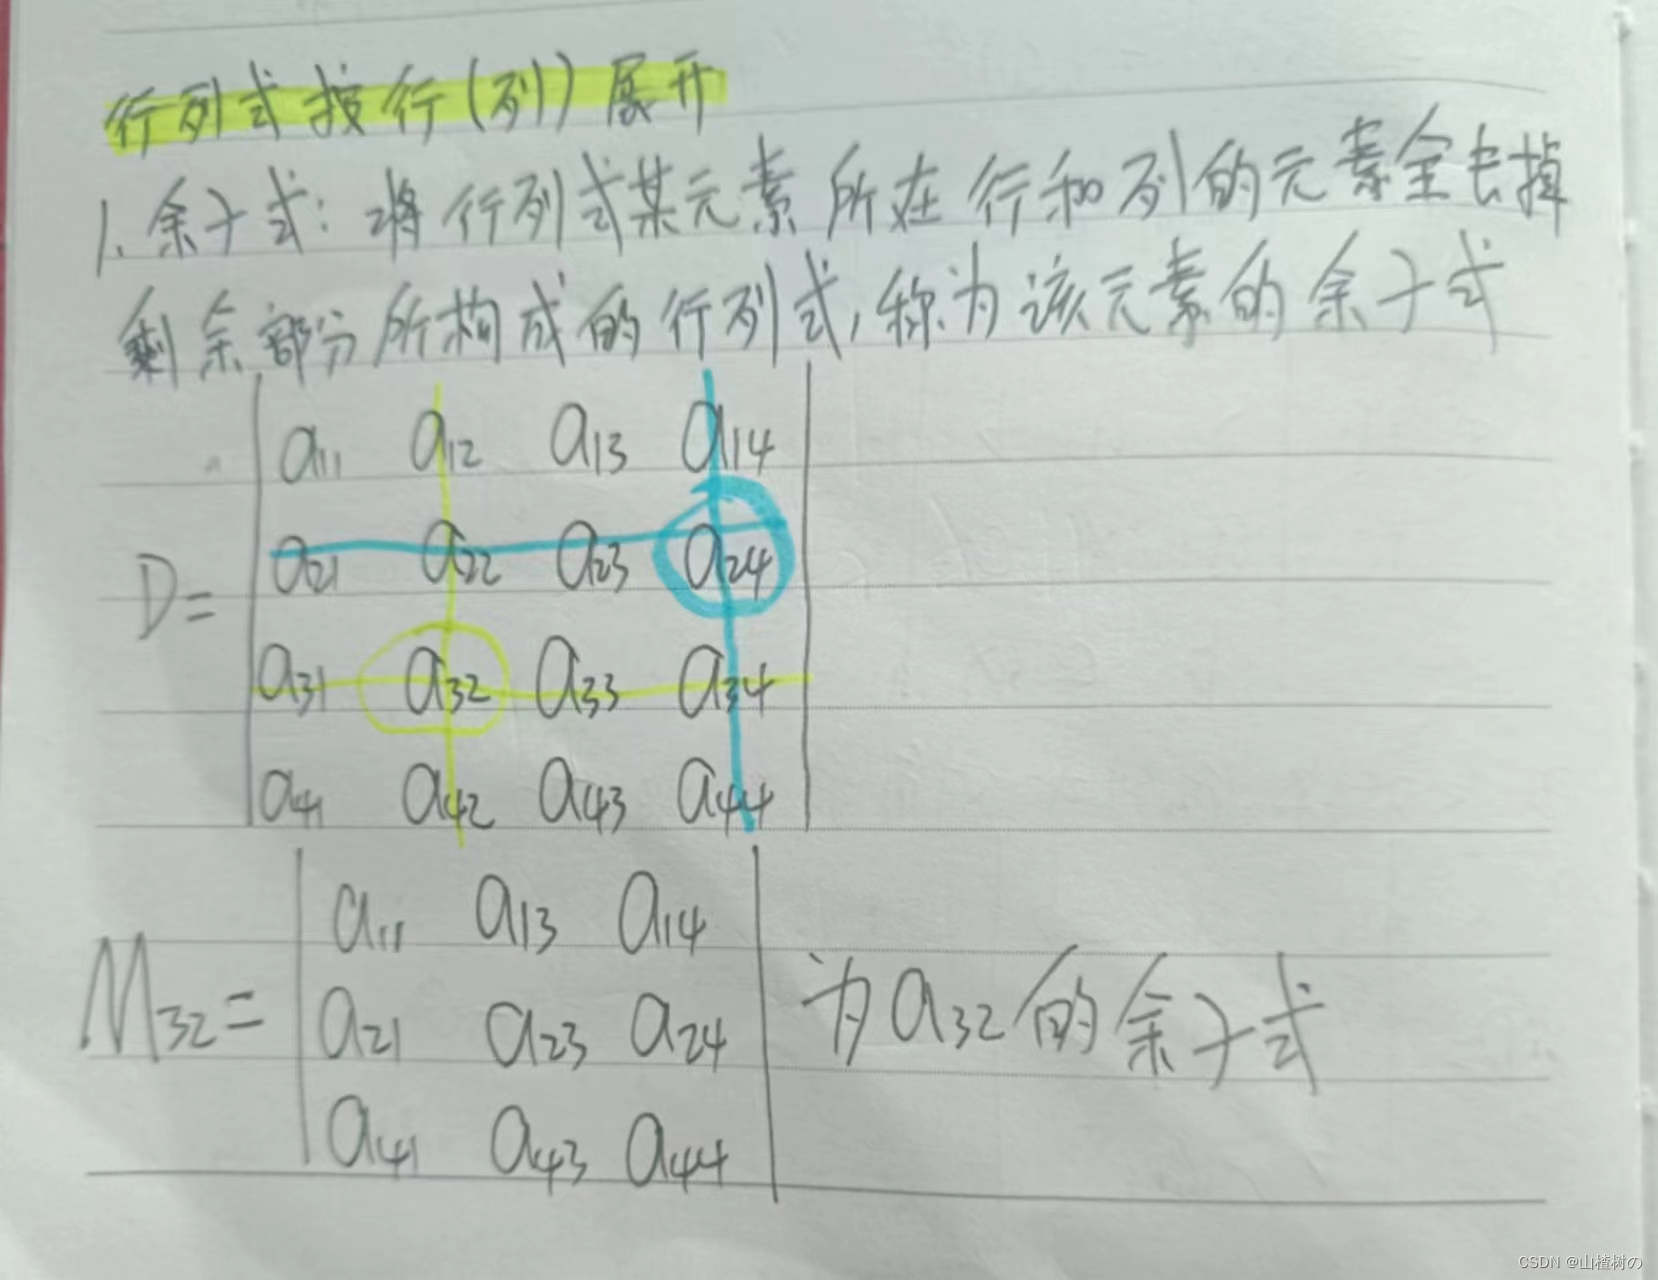 行列式按行(列)展开
1.余子式:将行列式某元素所在行和列的元素全去掉
剩余部分所构成的行列式,称为该元素的余子式
a11 a12 a13 a14
a21 a22 a23 a24
D=
a31 a32 a33 a34
a41 a42 a43 a44
a11 a13 a14
M32= a21 a23 a24 为a32的余子式
a41 a43 a44
CSDN @山楂树の